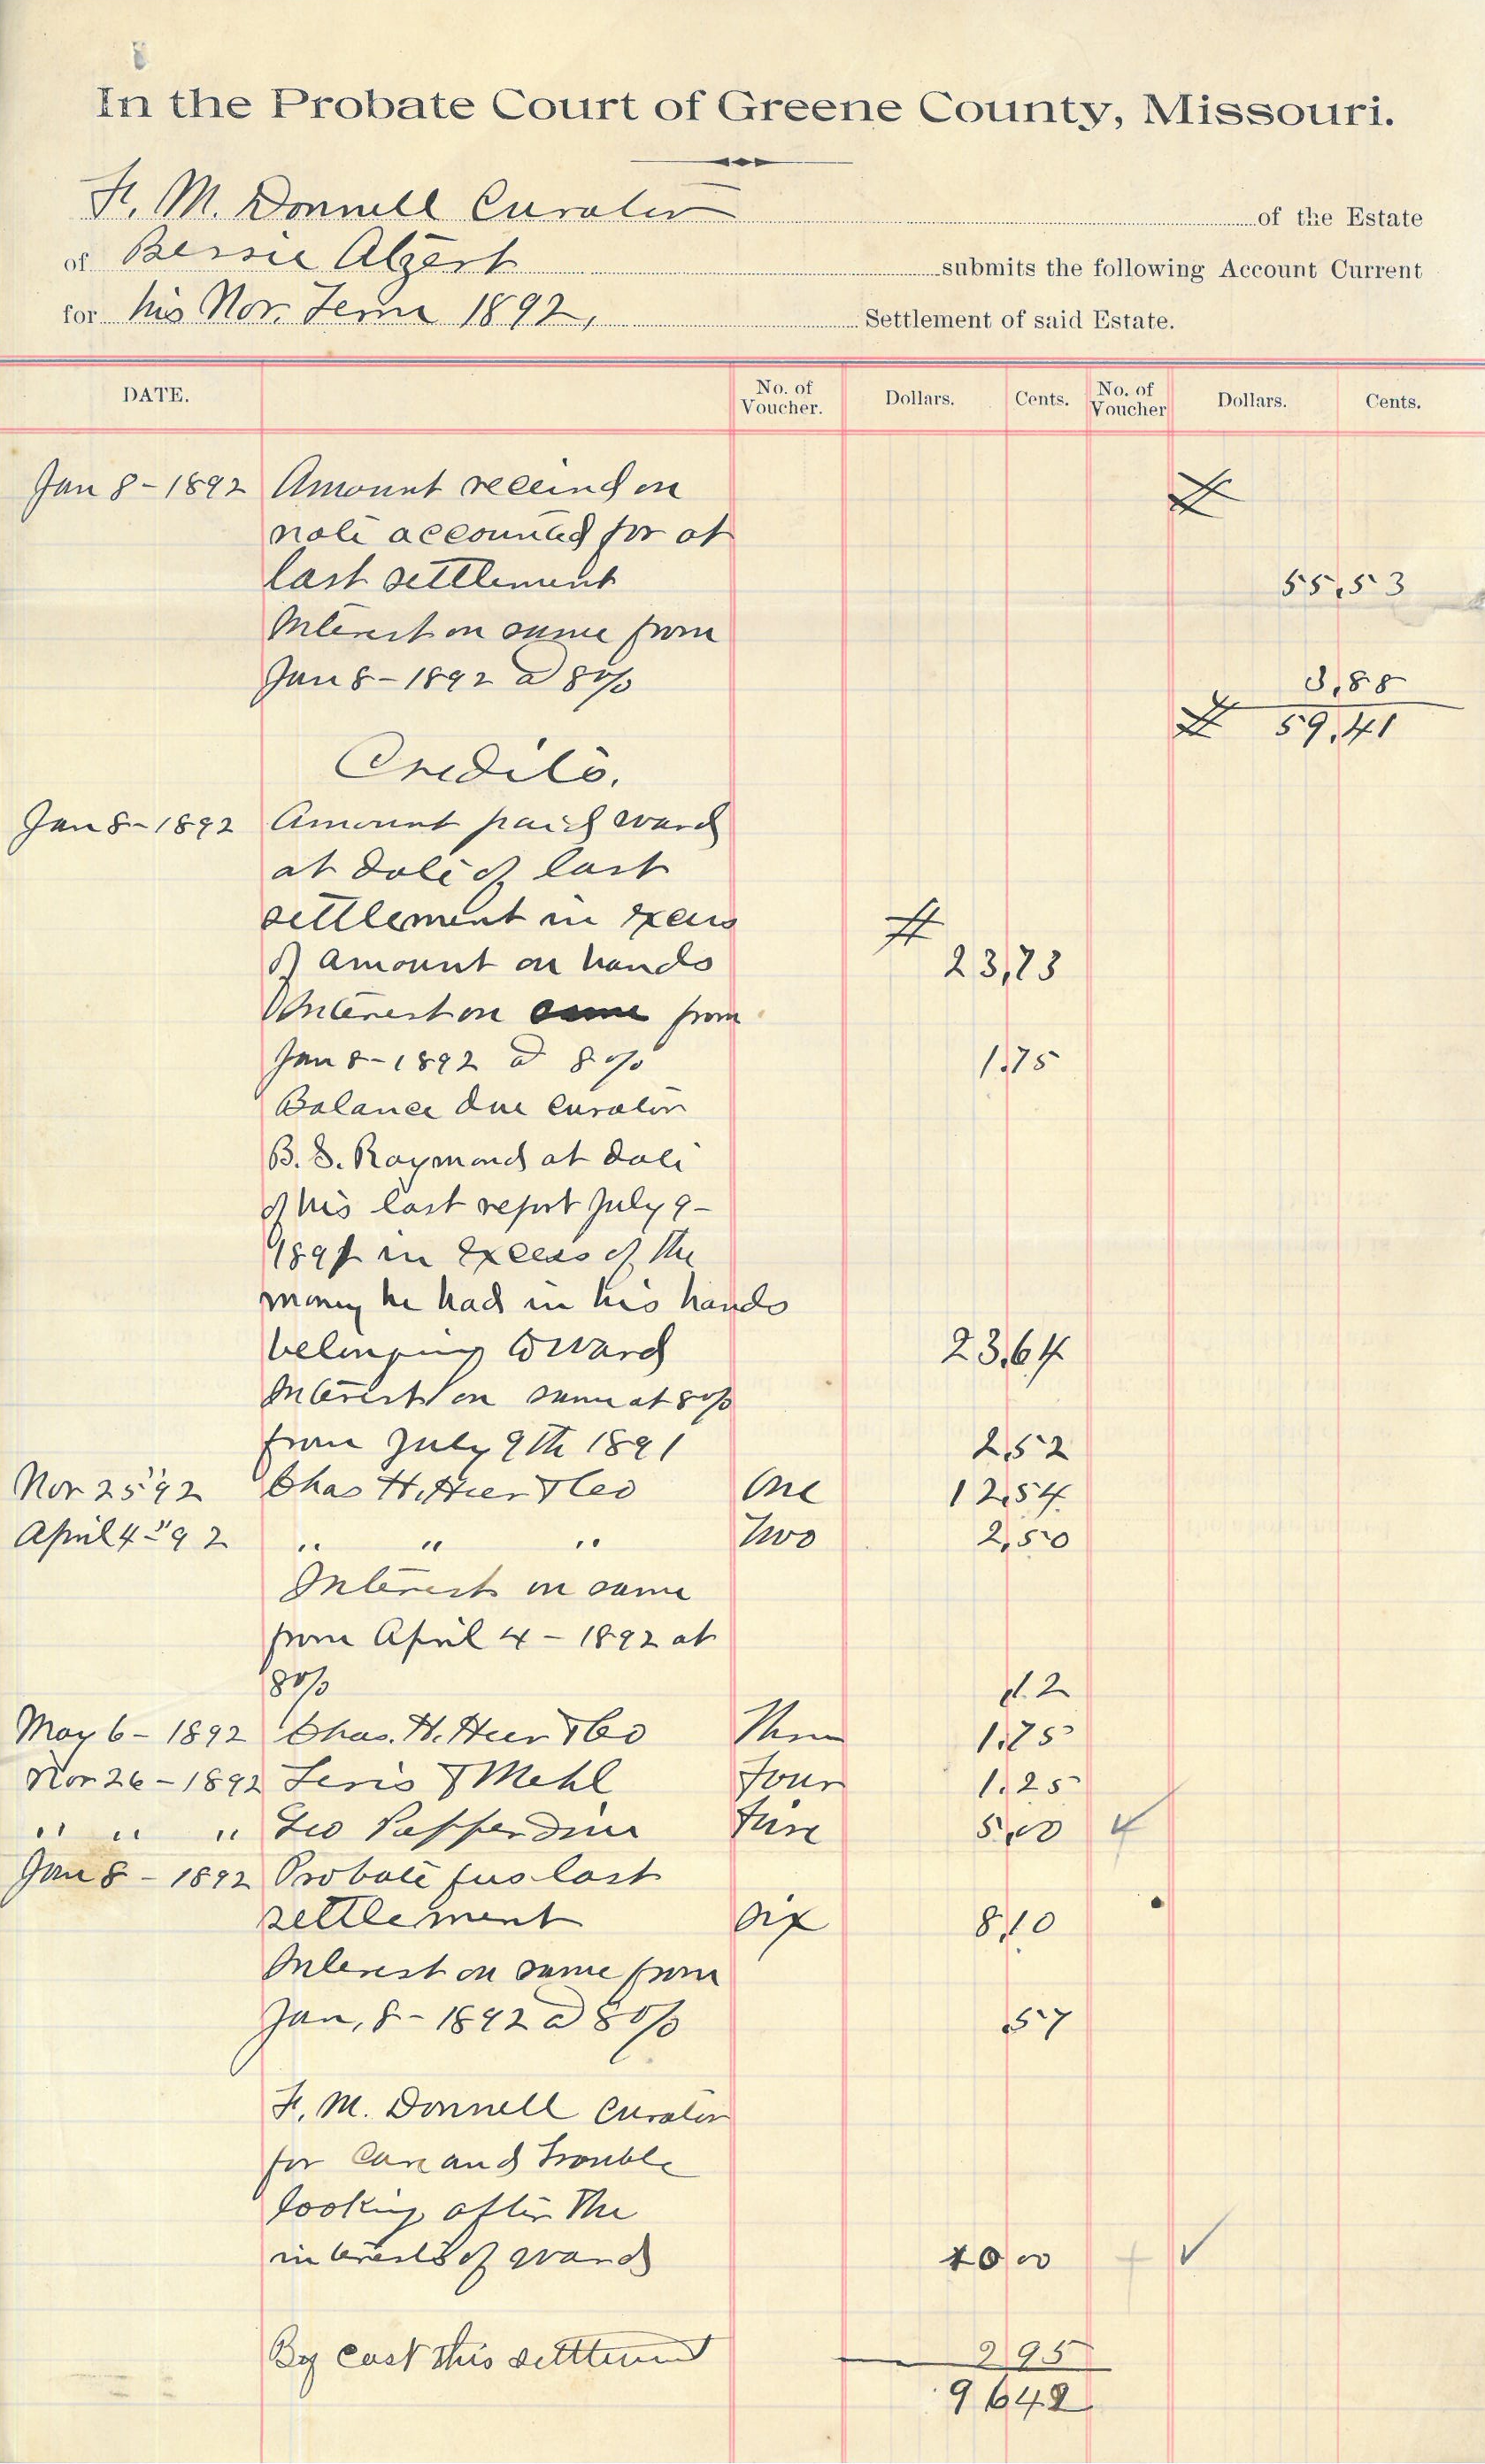 In the Probate Court of Greene County, Missouri.
F. M. Donnell Curator of the Estate
of Bessie Alzert submits the following Account Current
for his Nov. Term 1892, Settlement of said Estate.
DATE. No. of Voucher. Dollars. Cents. No. of Voucher Dollars. Cents.
Jan 8 - 1892 Amount received on #
note accounted for at
last settlement 55.53
Interest on same from
Jan 8 - 1892 @ 8% 3.88
# 59.41
Credits.
Jan 8 - 1892 Amount paid ward
at date of last
settlement in excess #
of amount on hands 23,73
Interest on same from
Jan 8 - 1892 @ 8% 1.75
Balance due curator
B. S. Raymond at date
of his last report July 9 -
1891 in excess of the
money he had in his hands
belonging to ward 23.64
Interest on same at 8%
from July 9th 1891 2.52
Nov 25" 92 Chas H. Heer & Co One 12.54
April 4 -" 92 " " " Two 2,50
Interest on same
from April 4 - 1892 at
8% .12
May 6 - 1892 Chas. H. Heer & Co Three 1.75
Nov 26 - 1892 & Mehl Four 1.25
" " " Geo Pepperdine Five 5.00
Jan 8 - 1892 Probate fees last
settlement six 8,10
Interest on same from
Jan, 8 - 1892 @ 8% .57
F. M. Donnell Curator
for care and trouble
looking after the
interests of ward 10 00 ✓
By cost this settlement 2 95
96 42